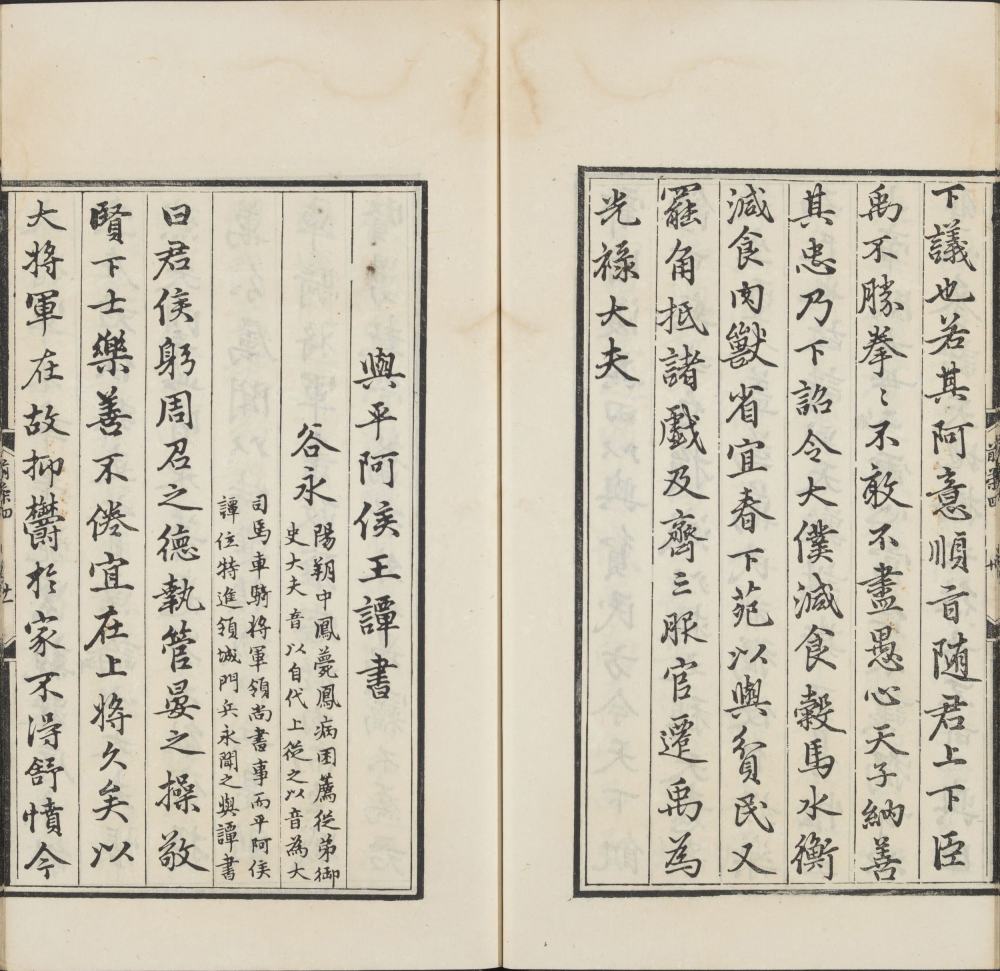 下議也若其阿意順旨随君上下臣
禹不勝拳〻不敢不盡愚心天子納善
其忠乃下詔令大僕減食穀馬水衡
減食肉獸省宜春下苑以與貧民又
罷角抵諸戲及齊三服官遷禹為
光祿大夫
與平阿侯王譚書
谷永
陽朔中鳳薨鳳病困薦從弟御
史大夫音以自代上從之以音為大
司馬車騎將軍領尚書事而平阿侯
譚位特進領城門兵永聞之與譚書
曰君侯躬周召之德執管晏之操敬
賢下士樂善不倦宜在上將久矣以
大將軍在故抑鬱於家不得舒憤今